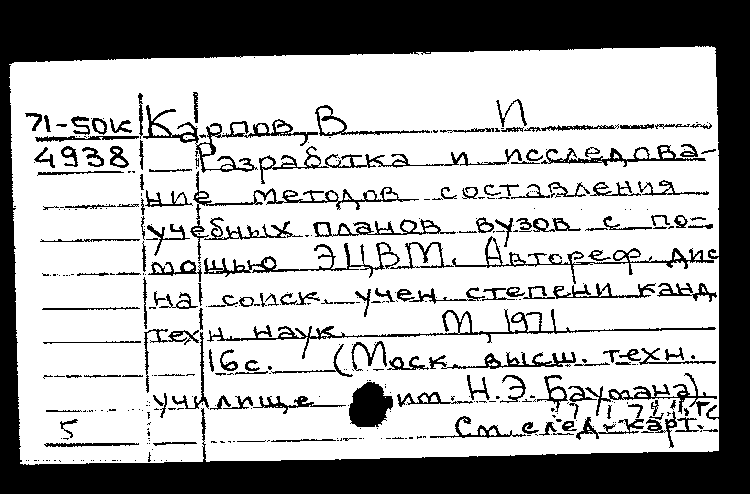 71-50к Карпов, В И
4938 Разработка и исследова-
ние методов составления
учебных планов вузов с по-
мощью ЭЦВМ. Автореф. дис
на соиск. учен. степени канд
техн. наук. М, 1971.
16с. (Моск. высш. техн.
училище им. Н.Э. Баумана).
5 См. след. карт.